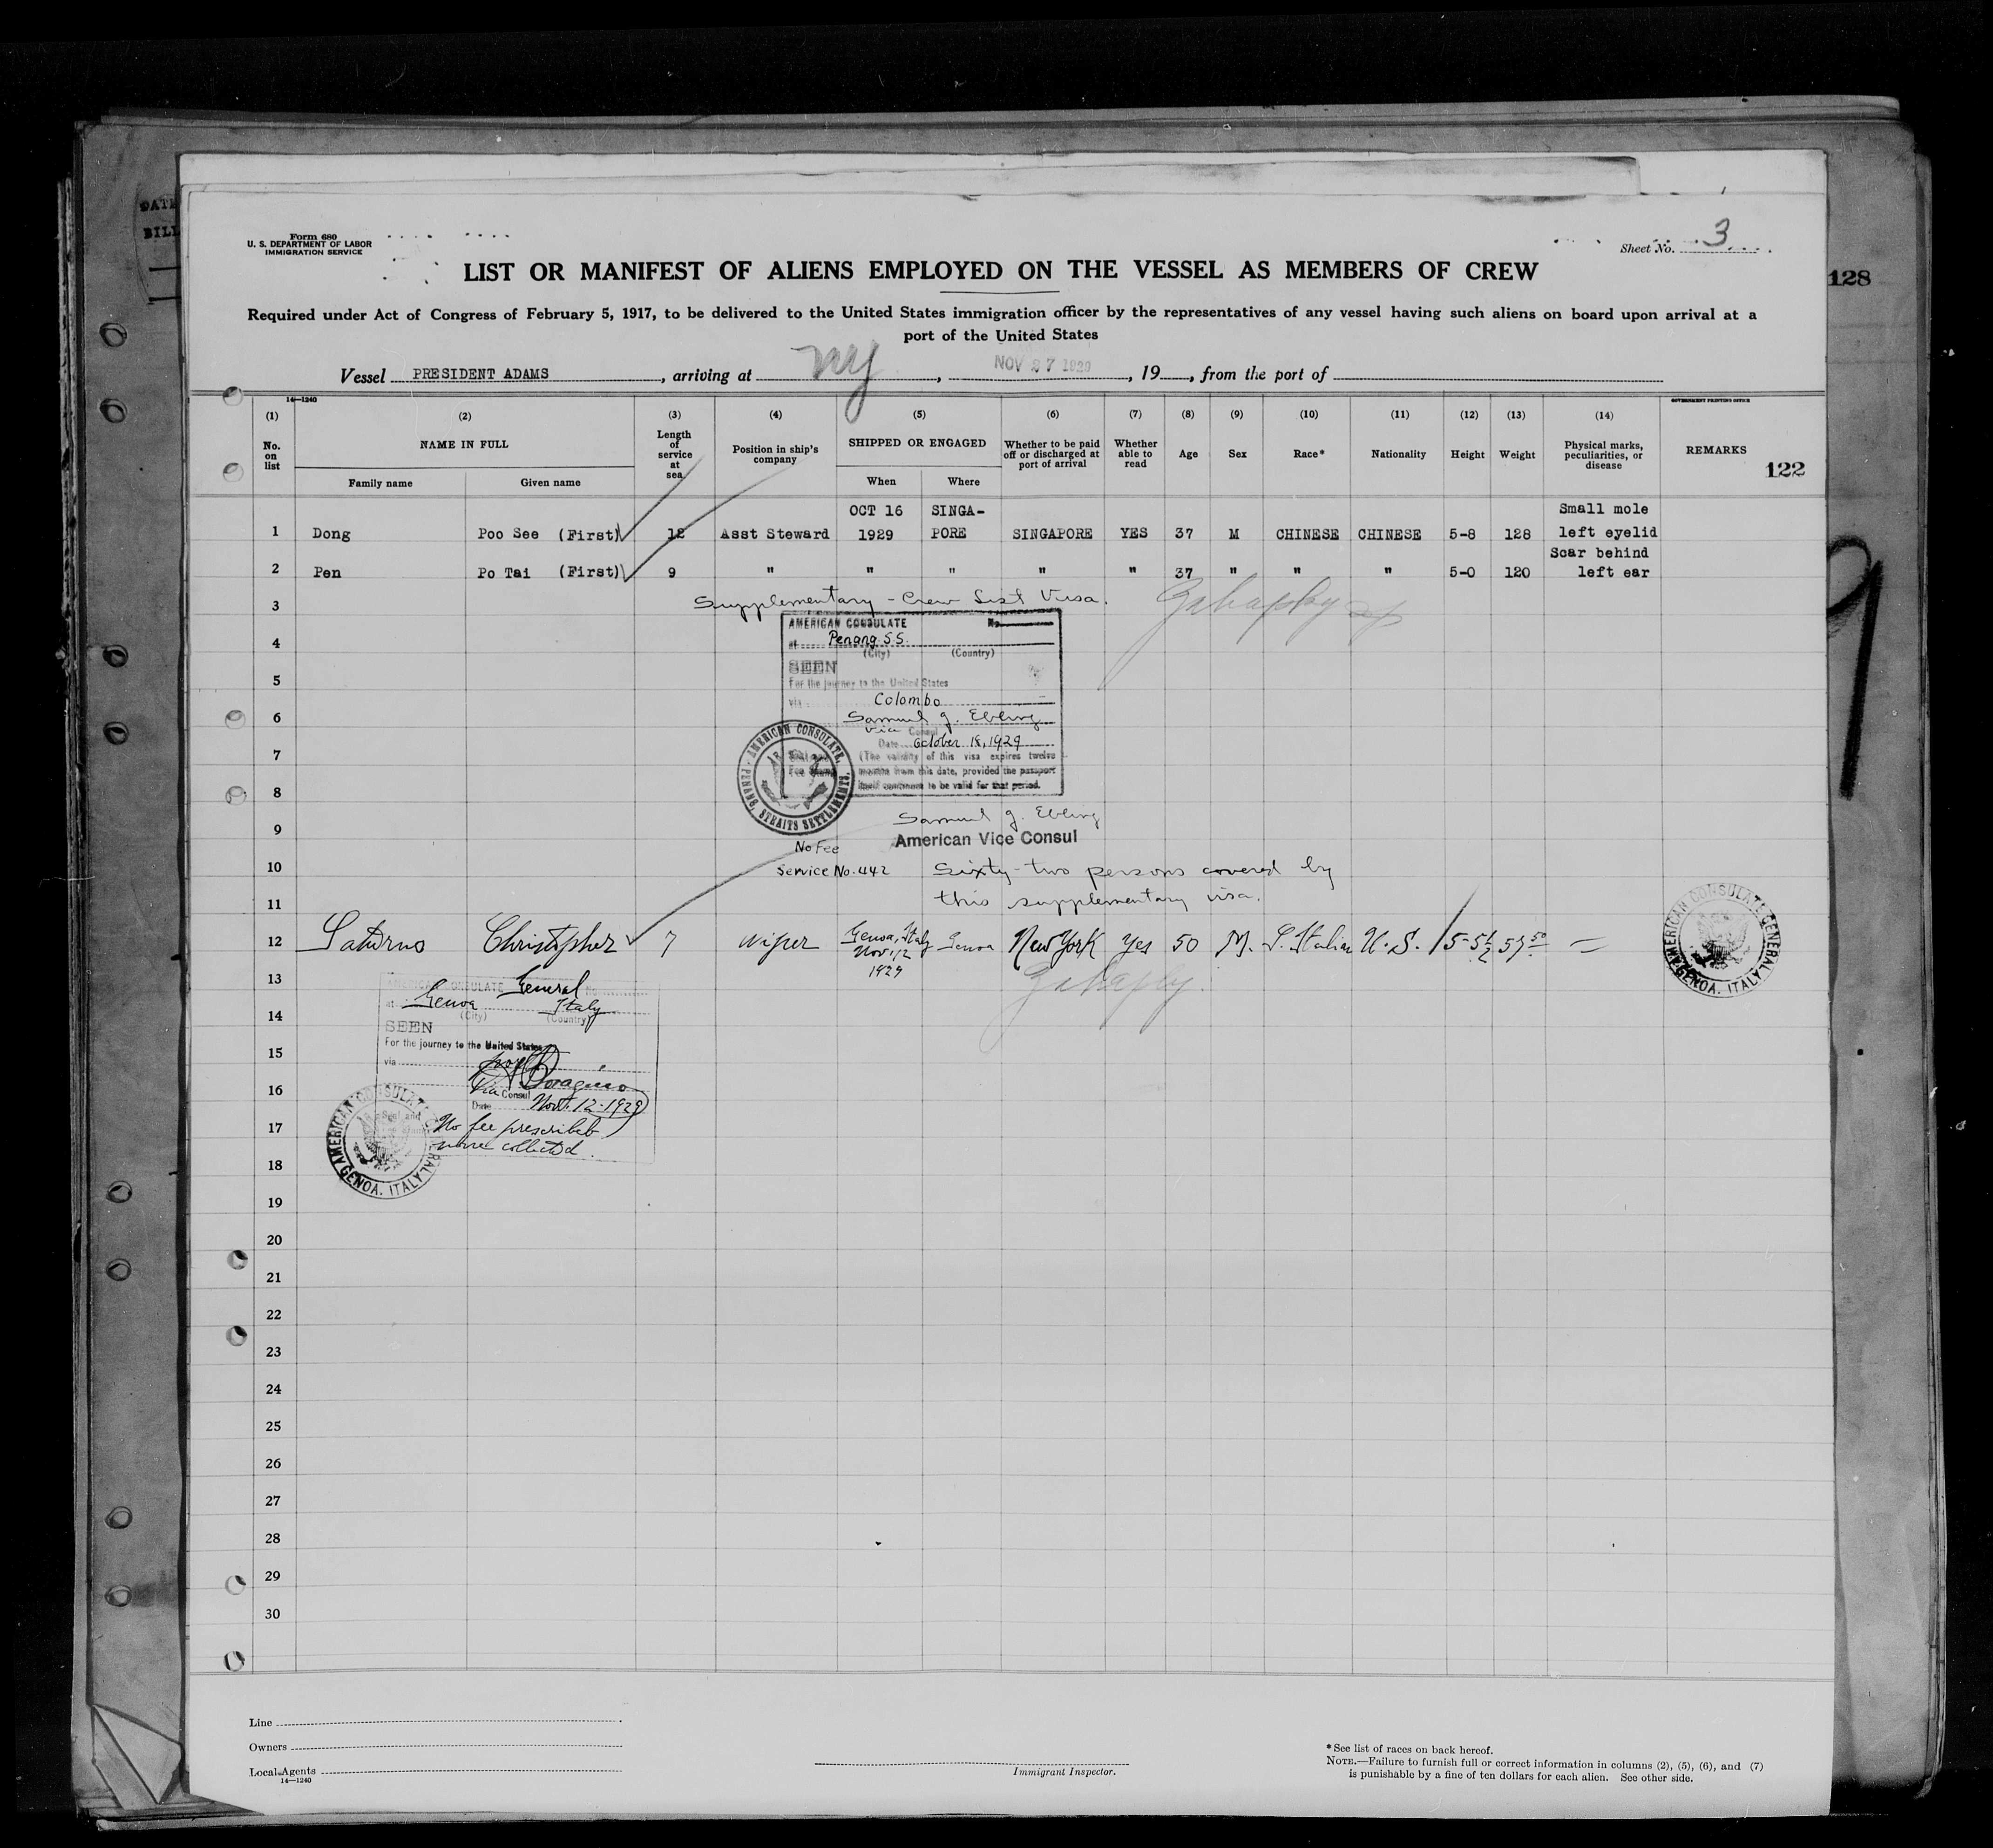 DATE
BILL
128
Form 680
U. S. DEPARTMENT OF LABOR
IMMIGRATION SERVICE
Sheet No. 3
LIST OR MANIFEST OF ALIENS EMPLOYED ON THE VESSEL AS MEMBERS OF CREW
Required under Act of Congress of February 5, 1917, to be delivered to the United States immigration officer by the representatives of any vessel having such aliens on board upon arrival at a
port of the United States
Vessel PRESIDENT ADAMS, arriving at NY, NOV 27 1929, 19, from the port of
14—1240
GOVERNMENT PRINTING OFFICE
(1) (2) (3) (4) (5) (6) (7) (8) (9) (10) (11) (12) (13) (14)
No. on list
NAME IN FULL
Family name
Given name
Length of service at sea
Position in ship's company
SHIPPED OR ENGAGED
When
Where
Whether to be paid off or discharged at port of arrival
Whether able to read
Age
Sex
Race*
Nationality
Height
Weight
Physical marks, peculiarities, or disease
REMARKS
122
OCT 16 SINGA- Small mole
1 Dong Poo See (First) 12 Asst Steward 1929 PORE SINGAPORE YES 37 M CHINESE CHINESE 5-8 128 left eyelid
Scar behind
2 Pen Po Tai (First) 9 " " " " " 37 " " " 5-0 120 left ear
3 Supplementary - Crew List Visa.
AMERICAN CONSULATE No.
4 at Penang S.S.
(City) (Country)
SEEN
5 For the journey to the United States
via Colombo
6 Samuel G. Ebling
Vice Consul
7 Date October 18, 1929
(The validity of this visa expires twelve
months from this date, provided the passport
8 itself continues to be valid for that period.
AMERICAN CONSULATE, PENANG, STRAITS SETTLEMENTS.
Samuel G. Ebling
9 American Vice Consul
No Fee
10 Service No. 442 Sixty-two persons covered by
11 this supplementary visa.
12 Saturno Christopher 7 Wiper Genoa, Italy Nov. 12 1929 Genoa New York Yes 50 M. S. Italian U.S. 5-5½ —
AMERICAN CONSULATE GENERAL GENOA, ITALY
13 AMERICAN CONSULATE General No.
at Genoa Italy
14 (City) (Country)
SEEN
15 For the journey to the United States
via
16 Vice Consul
Date Nov. 12-1929
17 No fee prescribed
none collected.
Seal and
AMERICAN CONSULATE GENERAL GENOA, ITALY
18
19
20
21
22
23
24
25
26
27
28
29
30
Line
Owners
Local Agents
14—1240
Immigrant Inspector.
* See list of races on back hereof.
NOTE.—Failure to furnish full or correct information in columns (2), (5), (6), and (7)
is punishable by a fine of ten dollars for each alien. See other side.